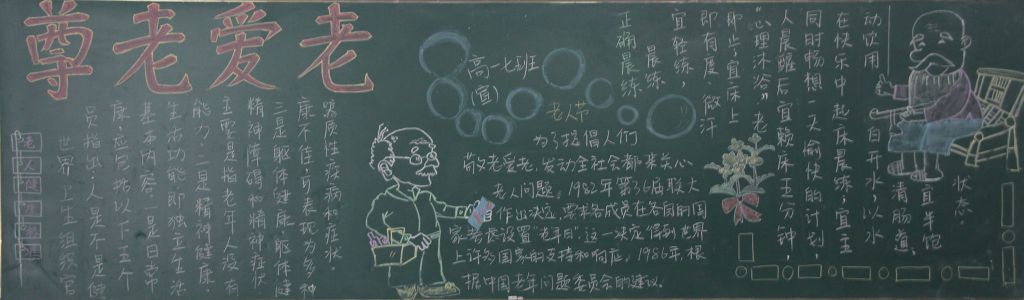 尊老爱老
高一七班
(宣)
老人节
为了提倡人们
敬老爱老,发动全社会都来关心
老人问题,1982年第36届联大
曾作出决定,要求各成员在各自的国
家考虑设置"老年日"。这一决定得到世界
上许多国家的支持和响应。1986年,根
据中国老年问题委员会的建议。
老人健
世界卫生组织官
员指出:人是不是健
康,应包括以下五个
基本内容:一是日常
生活功能即独立生活
能力;二是精神健康,
主要是指老年人没有
精神障碍和精神症状
三是躯体健康,躯体健
康不佳,可表现为多种
器质性疾病和症状。
正确晨练
晨练
宜轻练,
即有度,微汗
即止宜床上
"心理沐浴"老
人晨醒后宜赖床五分钟,
同时畅想一天愉快的计划,
在快乐中起床晨练;宜主
动饮用白开水,以水
清肠道,
宜半饱
状态。